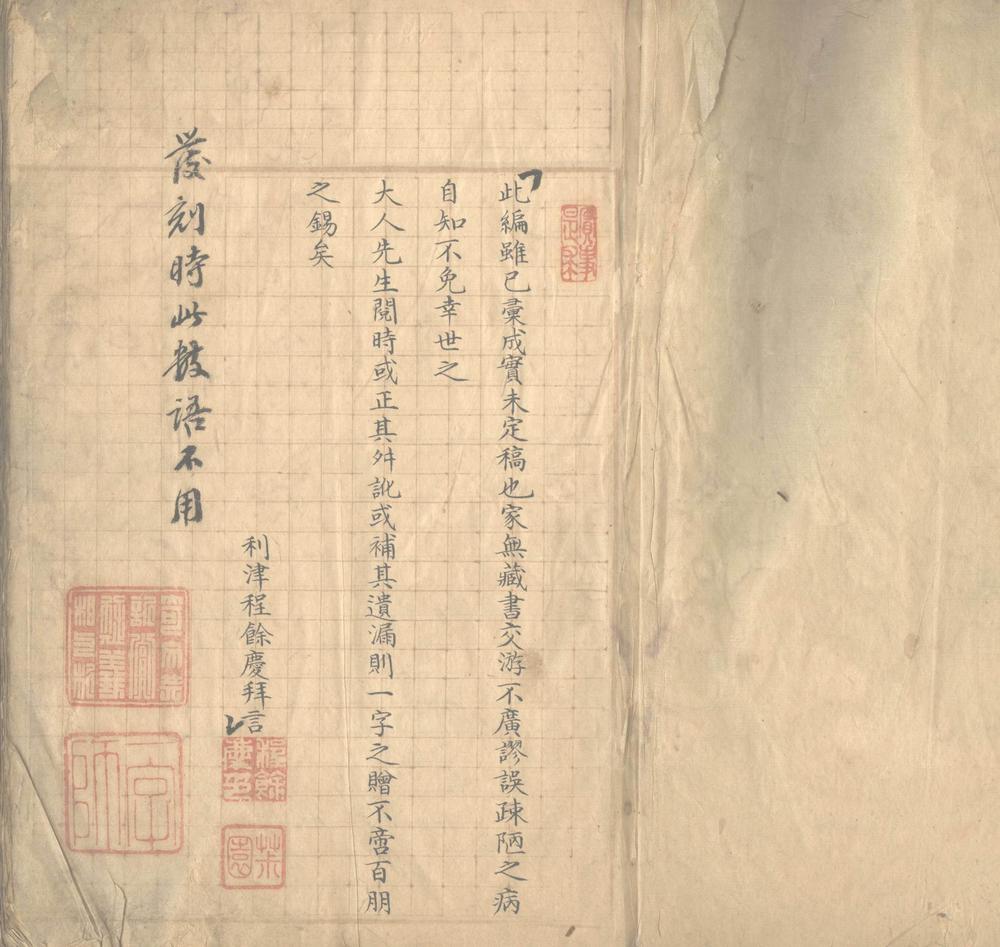 此編雖已彙成實未定稿也家無藏書交游不廣謬誤疎陋之病
自知不免幸世之
大人先生閱時或正其舛訛或補其遺漏則一字之贈不啻百朋
之錫矣
利津程餘慶拜言
程餘慶印
發刻時此數語不用
一字師